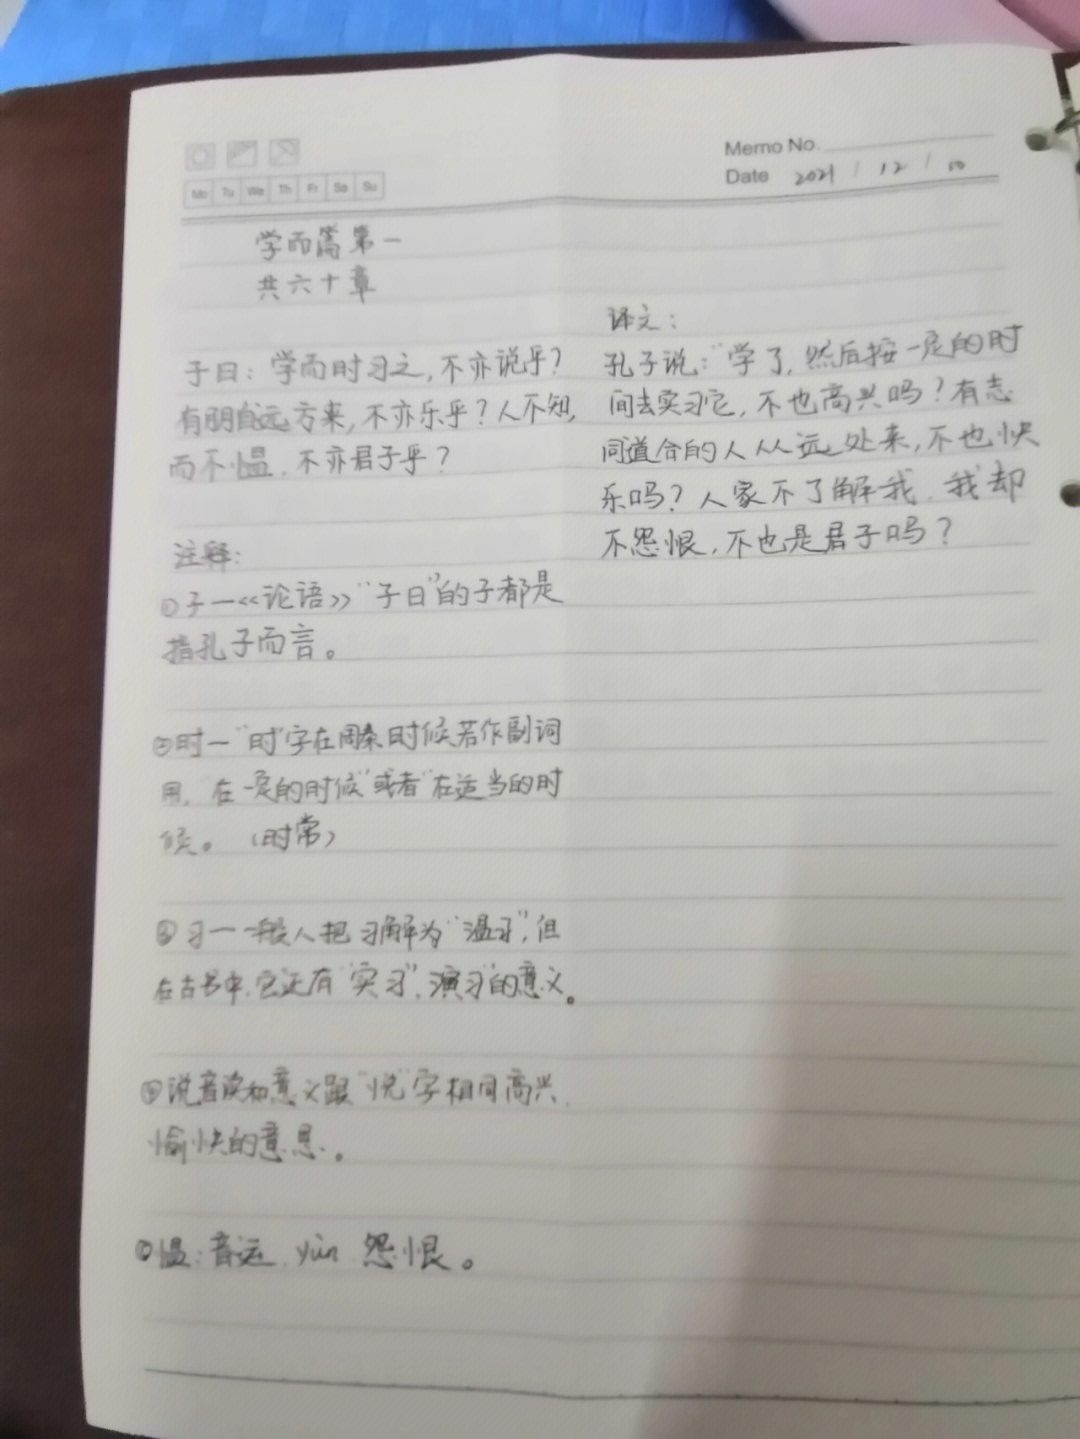 Memo No.
Mo Tu We Th Fr Sa Su
Date 2021 / 12 / 10
学而篇第一
共六十章
子曰：学而时习之，不亦说乎？
有朋自远方来，不亦乐乎？人不知，
而不愠，不亦君子乎？
注释：
①子一《论语》"子曰"的子都是
指孔子而言。
②时一"时"字在周秦时候若作副词
用，在一定的时候"或者"在适当的时
候。（时常）
③习一一般人把习解为"温习"，但
在古书中，它还有"实习"，演习"的意义。
④说音读和意义跟"悦"字相同高兴、
愉快的意思。
⑤愠：音运，yùn 怨恨。
译文：
孔子说："学了，然后按一定的时
间去实习它，不也高兴吗？有志
同道合的人从远处来，不也快
乐吗？人家不了解我，我却
不怨恨，不也是君子吗？